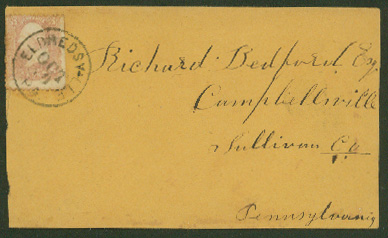 ELDREDSVILLE
OCT
PA
Richard Bedford Esq
Campbellsville
Sullivan Co
Pennsylvania